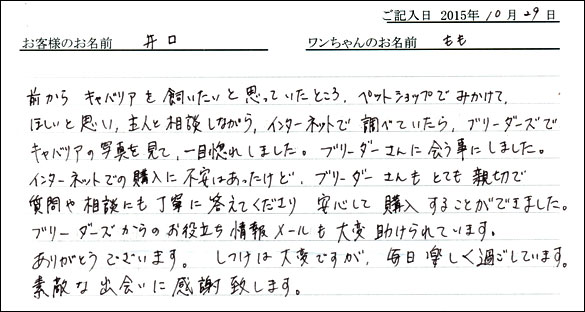 ご記入日 2015年10月29日
お客様のお名前 井口 ワンちゃんのお名前 もも
前から キャバリアを飼いたいと思っていたところ、ペットショップでみかけて、
ほしいと思い、主人と相談しながら、インターネットで 調べていたら、ブリーダーズで
キャバリアの写真を見て、一目惚れしました。ブリーダーさんに会う事にしました。
インターネットでの購入に不安はあったけど、ブリーダーさんも とても 親切で
質問や相談にも丁寧に答えてくださり 安心して 購入することができました。
ブリーダーズからのお役立ち情報メールも大変助けられています。
ありがとうございます。 しつけは大変ですが、毎日楽しく過ごしています。
素敵な出会いに感謝致します。